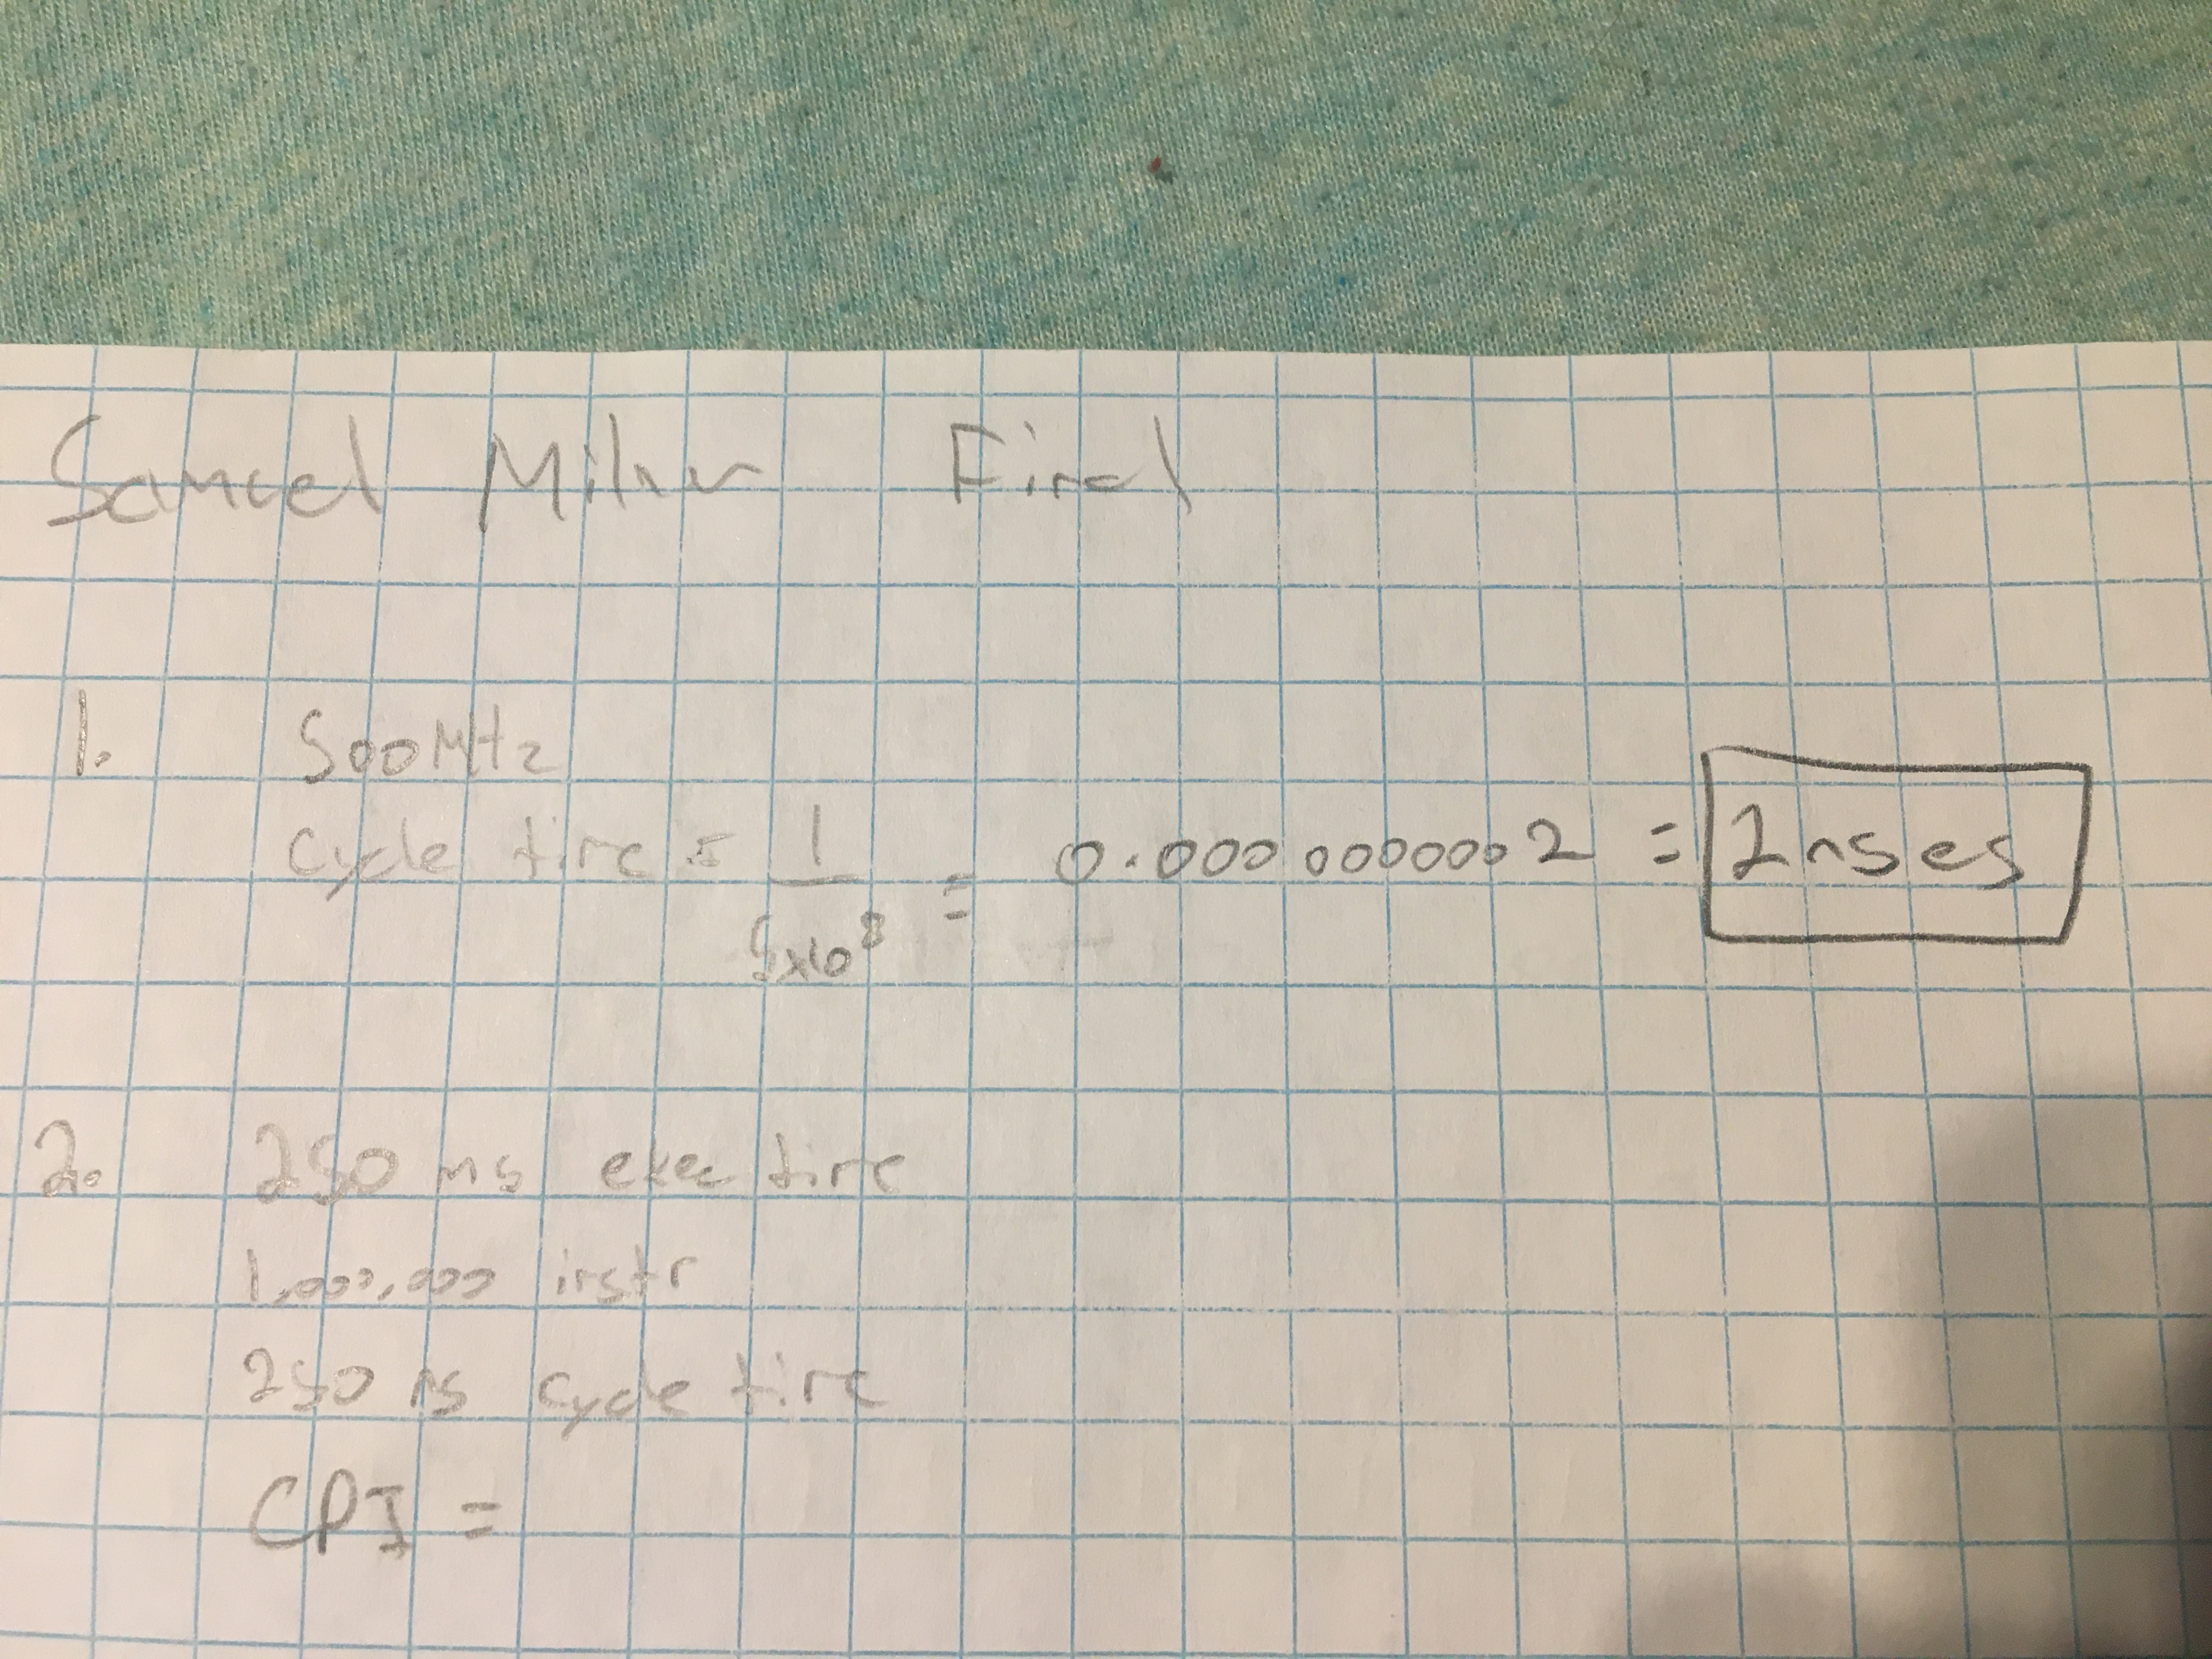 Samuel Milner Final
1. 500 MHz
Cycle time = 1
5x10⁸ = 0.000000002 = 2nsec
2. 250 ms exec time
1,000,000 instr
250 ns cycle time
CPI =